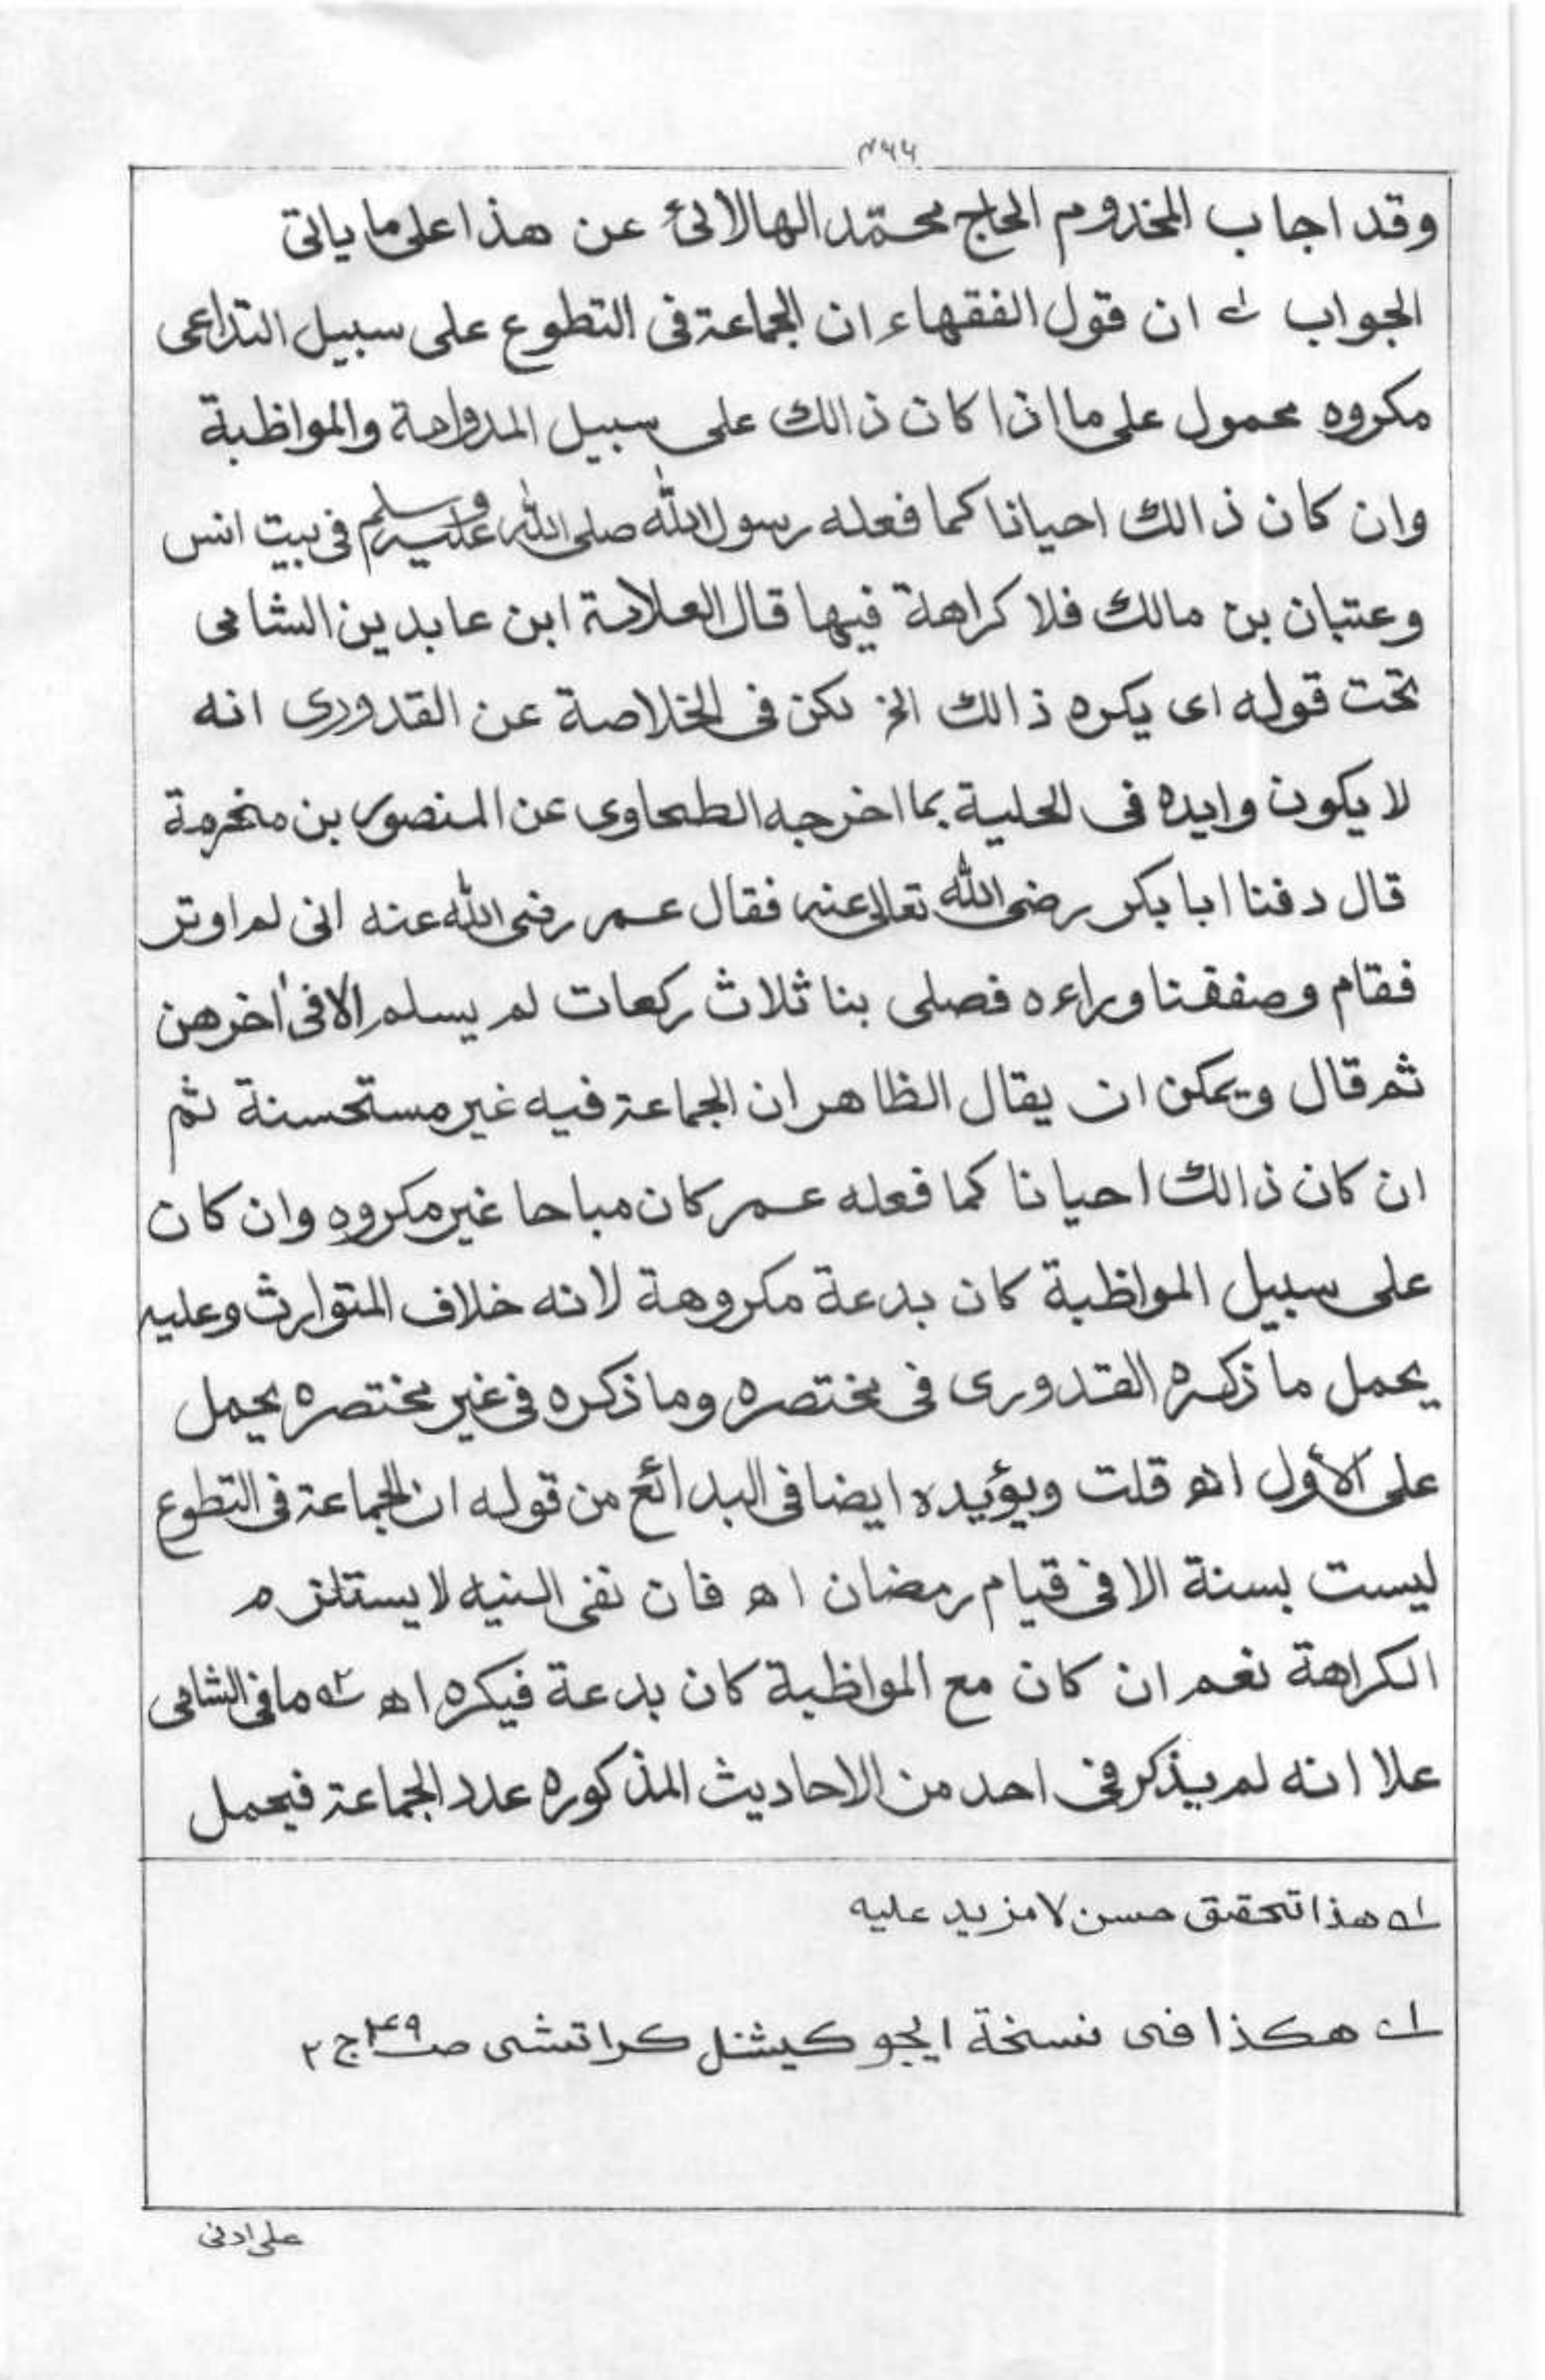 ۴۶۶
وقد اجاب المخدوم الحاج محمّد الهالائی عن هذا علی ما یاتی
الجواب لہ ان قول الفقهاء ان الجماعة فی التطوع علی سبیل التداعی
مکروه محمول علی ما اذا کان ذالک علی سبیل المداومة والمواظبة
وان کان ذالک احیانا کما فعله رسول اللّٰه صلی اللّٰه علیه وسلم فی بیت انس
وعتبان بن مالک فلا کراهة فیها قال العلامة ابن عابدین الشامی
تحت قوله ای یکره ذالک الخ لکن فی الخلاصة عن القدوری انه
لا یکون وایده فی الحلیة بما اخرجه الطحاوی عن المنصور بن مخرمة
قال دفنا ابا بکر رضی اللّٰه تعالی عنه فقال عمر رضی اللّٰه عنه انی لم اوتر
فقام وصففنا وراءه فصلی بنا ثلاث رکعات لم یسلم الا فی اٰخرهن
ثم قال ویمکن ان یقال الظاهر ان الجماعة فیه غیر مستحسنة ثم
ان کان ذالک احیانا کما فعله عمر کان مباحا غیر مکروه وان کان
علی سبیل المواظبة کان بدعة مکروهة لانه خلاف المتوارث وعلیه
یحمل ما ذکره القدوری فی مختصره وما ذکره فی غیر مختصره یحمل
علی الأول اه قلت ویؤیده ایضا فی البدائع من قوله ان الجماعة فی التطوع
لیست بسنة الا فی قیام رمضان اه فان نفی السنیه لا یستلزم
الکراهة نعم ان کان مع المواظبة کان بدعة فیکره اه ۲ہ ما فی الشامی
علا انه لم یذکر فی احد من الاحادیث المذکوره عدد الجماعة فیحمل
۱ہ هذا تحقیق حسن لا مزید علیه
۱ہ هکذا فی نسخة ایجوکیشنل کراتشی صـ۴۹ ج ۲
علی ادنی